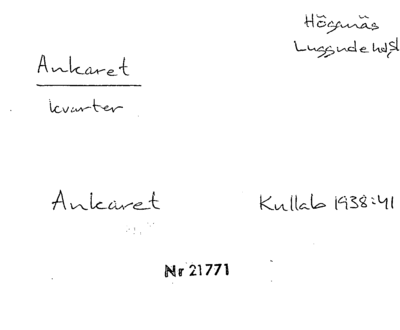 Höganäs
Luggude hd sl
Ankaret
kvarter
Ankaret
Kullab 1938:41
Nr 21771